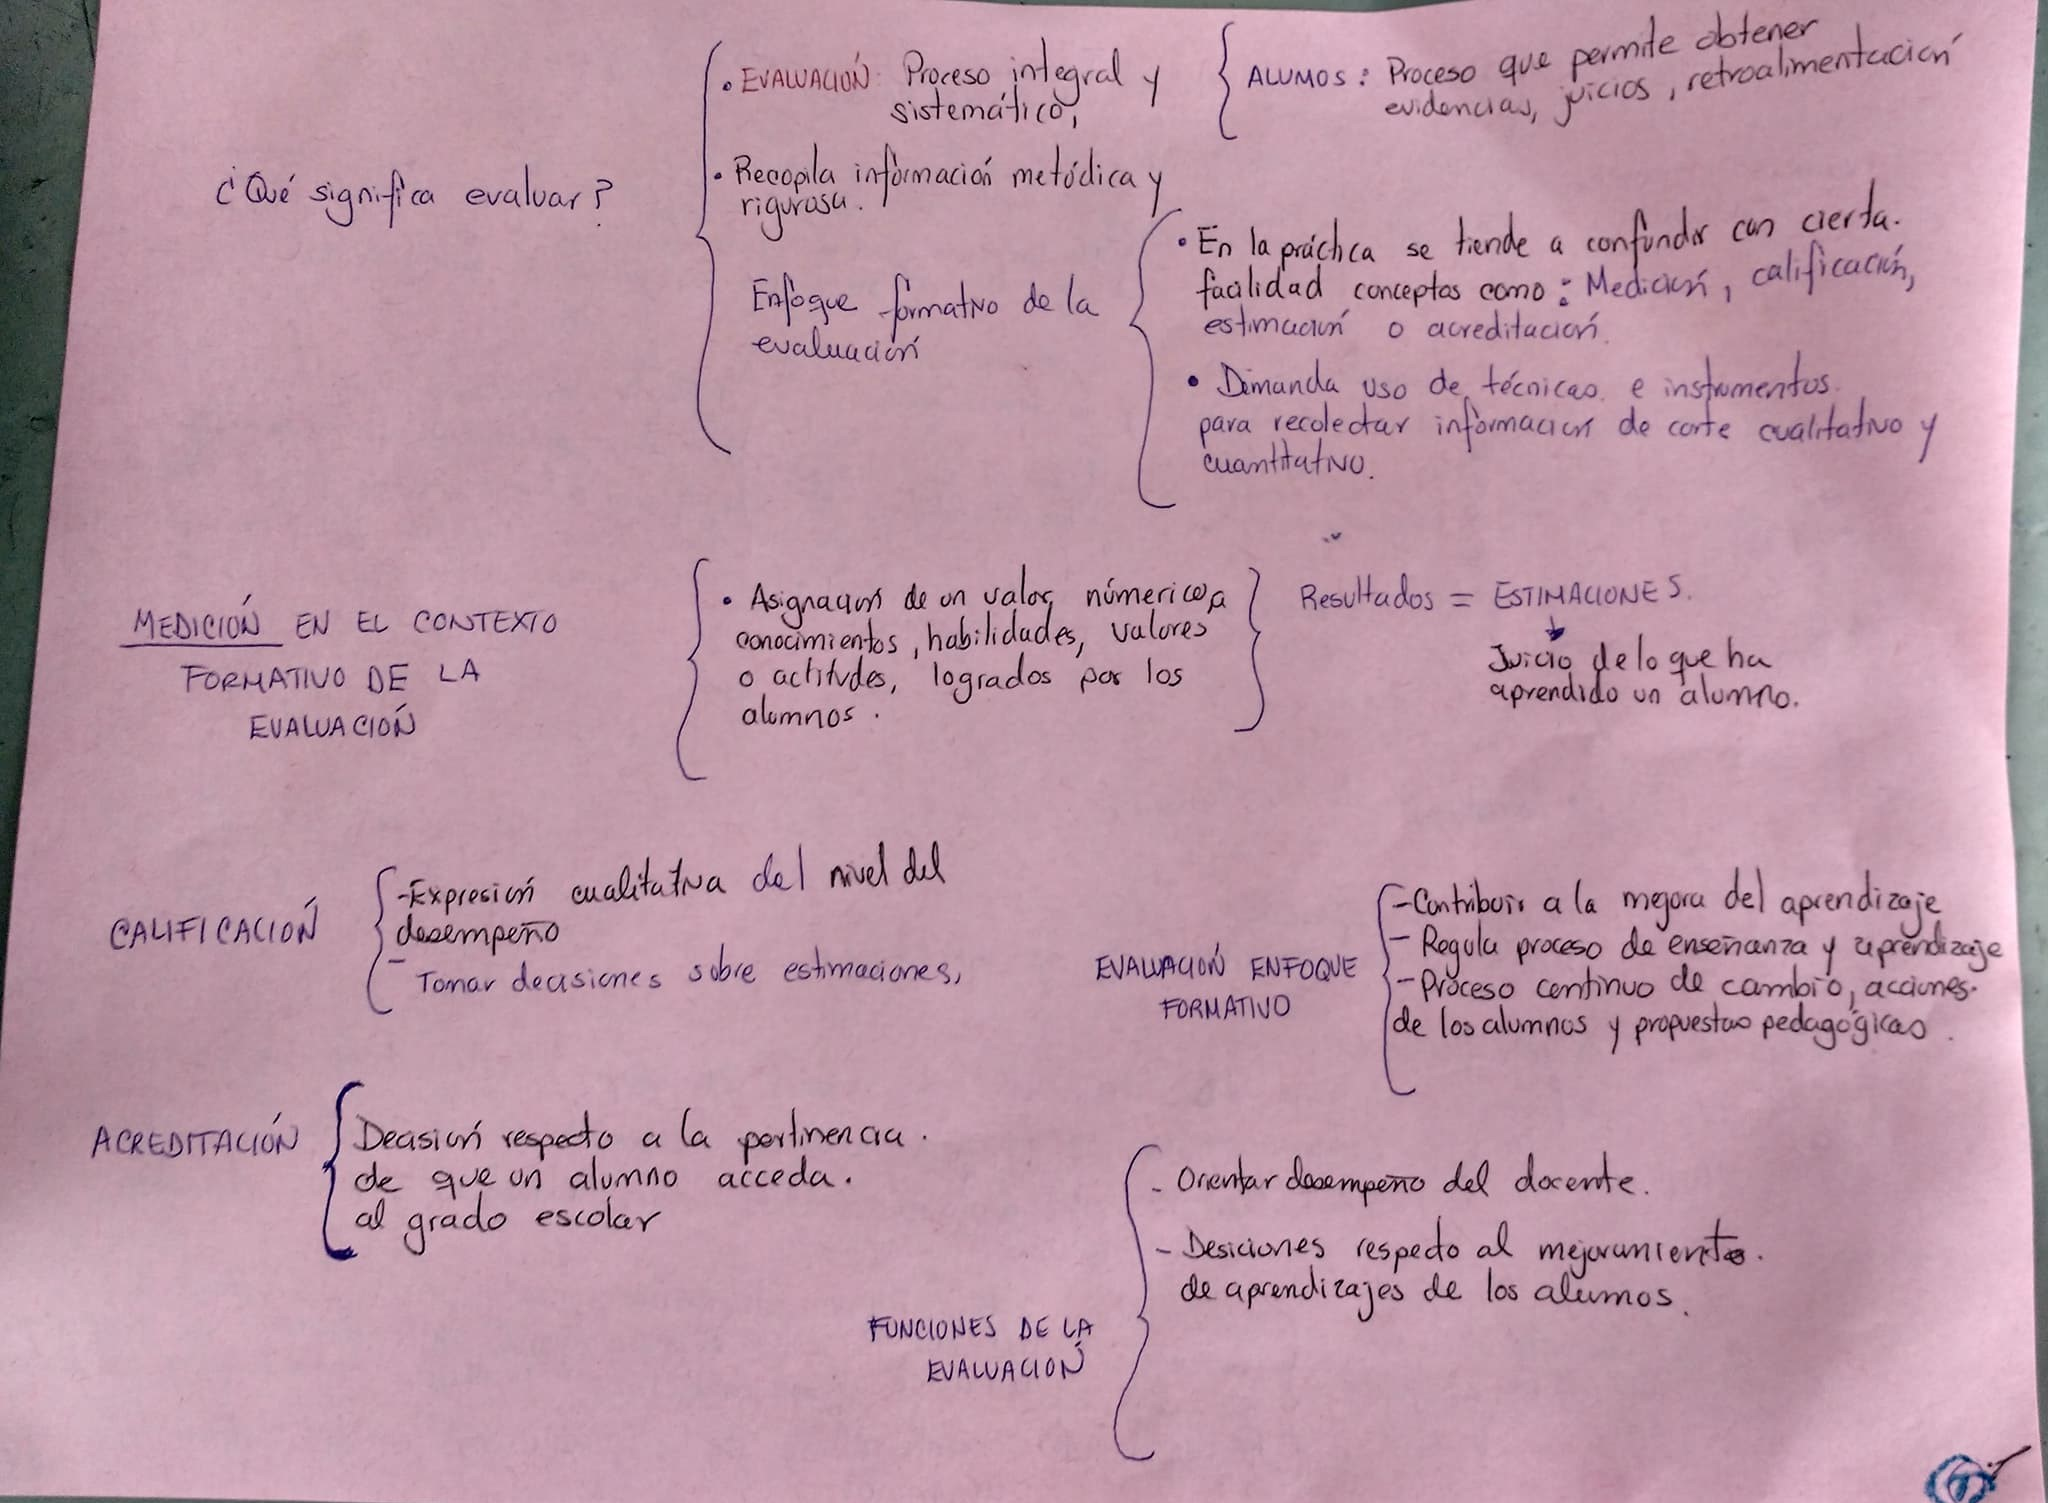 ¿Qué significa evaluar?
• EVALUACIÓN: Proceso integral y
sistemático,
• Recopila información metódica y
rigurosa.
Enfoque formativo de la
evaluación
ALUMOS: Proceso que permite obtener
evidencias, juicios, retroalimentación
• En la práctica se tiende a confundir con cierta.
facilidad conceptos como: Medición, calificación,
estimación o acreditación.
• Demanda uso de técnicas e instrumentos
para recolectar información de corte cualitativo y
cuantitativo.
MEDICIÓN EN EL CONTEXTO
FORMATIVO DE LA
EVALUACIÓN
• Asignación de un valor númerico a
conocimientos, habilidades, valores
o actitudes, logrados por los
alumnos.
Resultados = ESTIMACIONES.
Juicio de lo que ha
aprendido un alumno.
CALIFICACIÓN
-Expresión cualitativa del nivel del
desempeño
- Tomar decisiones sobre estimaciones,
EVALUACIÓN ENFOQUE
FORMATIVO
-Contribuir a la mejora del aprendizaje
- Regula proceso de enseñanza y aprendizaje
-Proceso continuo de cambio, acciones.
de los alumnos y propuestas pedagógicas.
ACREDITACIÓN
Decisión respecto a la pertinencia.
de que un alumno acceda.
al grado escolar
FUNCIONES DE LA
EVALUACIÓN
- Orientar desempeño del docente.
- Desiciones respecto al mejoramiento.
de aprendizajes de los alumos.